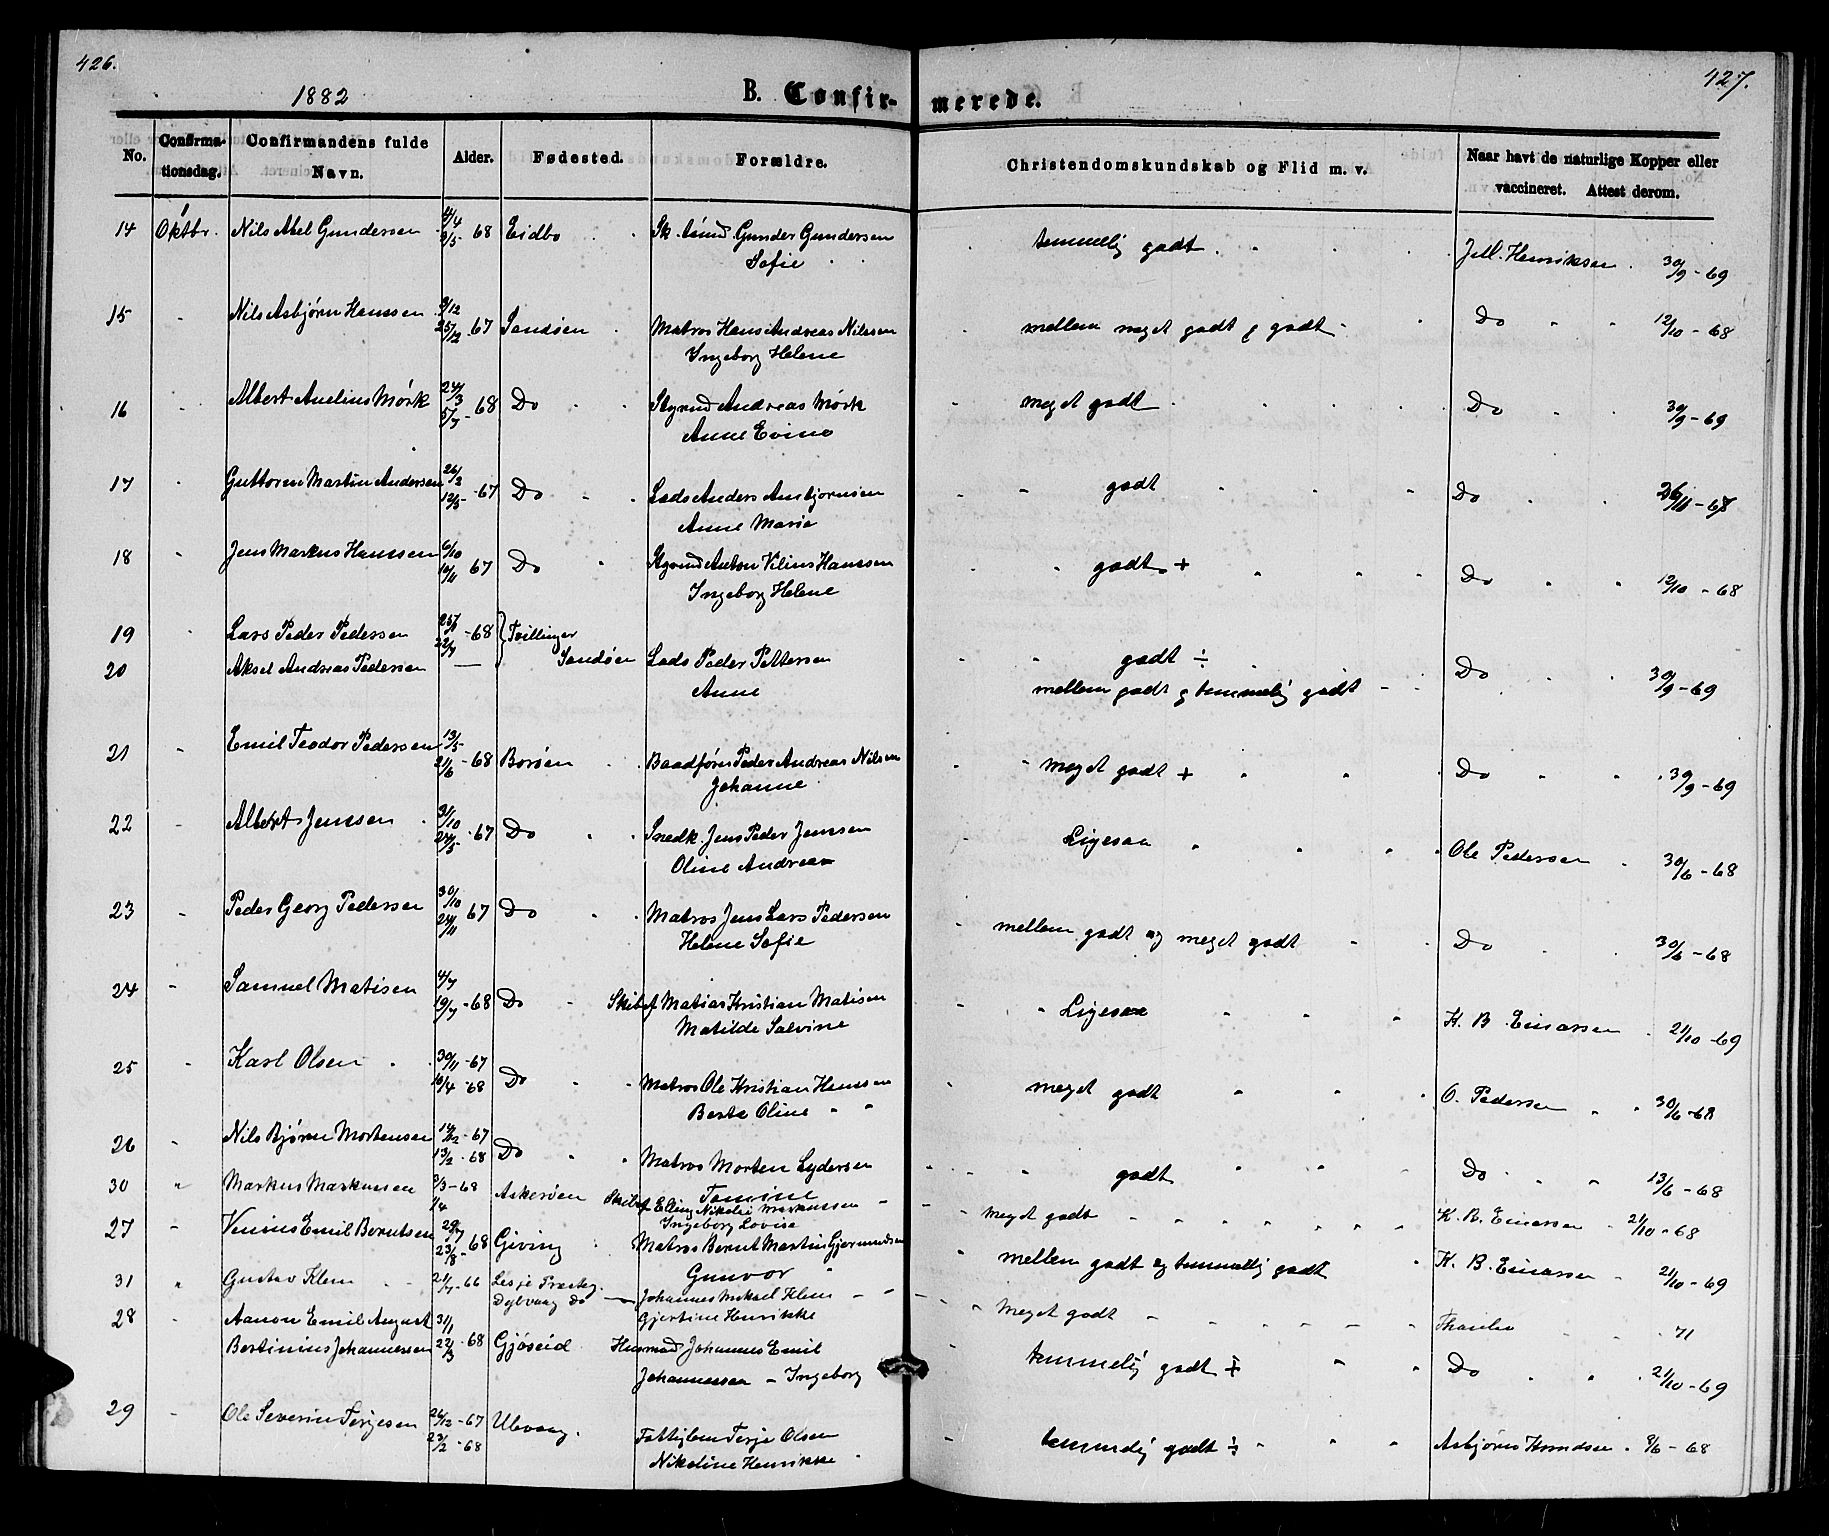 426.
1882
B. Confir-
merede.
427.
No. Confirmationsdag. Confirmandens fulde Navn. Alder. Fødested. Forældre. Christendomskundskab og Flid m. v. Naar havt de naturlige Kopper eller vaccineret. Attest derom.
14 Oktbr. Nils Abel Gundersen 68 Eidbo Gunder Gundersen temmelig godt Henriksen 30/9 - 69
Sofie
15 " Nils Asbjørn Hanssen 9/12 25/12 - 67 Sandøen Matros Hans Andreas Nilssen mellem meget godt og godt Do 12/10 - 68
Ingeborg Helene
16 " Albert Mørk 24/3 5/7 - 68 Do Styrmd Andreas Mørk meget godt Do 30/9 - 69
Anne
17 " Guttorm Martin Andersen 26/2 12/5 - 67 Do Lods Anders Ambjørnsen godt Do
Anne Marie
18 " Jens Markus Hanssen 6/10 67 Do Styrmd Hanssen godt + Do 12/10 - 68
Ingeborg Helene
19 " Lars Peder Pedersen - 68 Tvillinger
20 Aksel Andreas Pedersen — Sandøen Lods Peder Pettersen godt ÷ Do 30/9 - 69
Anne mellem godt og temmelig godt
21 " Emil Teodor Pedersen 13/5 21/6 - 68 Borøen Baadfører Peder Andreas Nilsen meget godt + Do 30/9 - 69
Johanne
22 " Albert Jenssen 31/10 - 67 Do Snedk. Jens Peder Jenssen Ligesaa Ole Pedersen 30/6 - 68
Oline Andrea
23 " Peder Georg Pedersen 30/10 24/11 67 Do Matros Jens Lars Pedersen mellem godt og meget godt Do 30/6 - 68
Helene Sofie
24 " Samuel Matisen 4/7 19/7 - 68 Do Skibsf Matias Kristian Matisen Ligesaa K. B. Einarsen 21/10 - 69
Matilde Salvine
25 " Karl Olsen 30/11 - 67 - 68 Do Matros Ole Kristian Hanssen meget godt O. Pedersen 30/6 - 68
Berte Oline
26 " Nils Bjørn Mortensen 14/12 - 67 13/2 - 68 Do Matros Morten Lydersen godt Do 13/6 - 68
Tomine
30 " Markus Markussen - 68 1/4 Askerøen Skibsf Elling Nikolai Markussen Meget godt K. B. Einarsen 21/10 - 68
Ingeborg Lovise
27 " Emil Berntsen 23/8 - 68 Giving Matros Bernt Martin Gjermundsen mellem godt og temmelig godt K. B. Einarsen 21/10 - 69
Gunvor
31 " Gustav Klem 21/7 - 66 Lesje Præsteg. Johannes Mikael Klem Meget godt - 71
Dybvaag Do — Gjertine Henrikke
28 Aanon Emil August 31/1
Bertinius Johannessen 22/3 - 68 Gjøseid Husmd Johannes Emil temmelig godt ÷ Do 21/10 - 69
Johannessen - Ingeborg
29 " Ole Severin Terjesen 26/12 - 67 23/2 - 68 Ulevaag. Fattiglem Terje Olsen temmelig godt ÷ Asbjørn Knudsen 9/6 - 68
Nikoline Henrikke